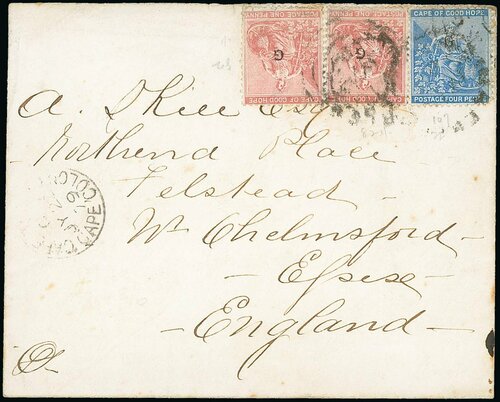 CAPE OF GOOD HOPE
POSTAGE ONE PENNY
G
CAPE OF GOOD HOPE
POSTAGE ONE PENNY
G
CAPE OF GOOD HOPE
POSTAGE FOUR PE
G
A. Skill Esq
Northend Place
Felstead
Nr Chelmsford
Essex
England
CAPE COLO